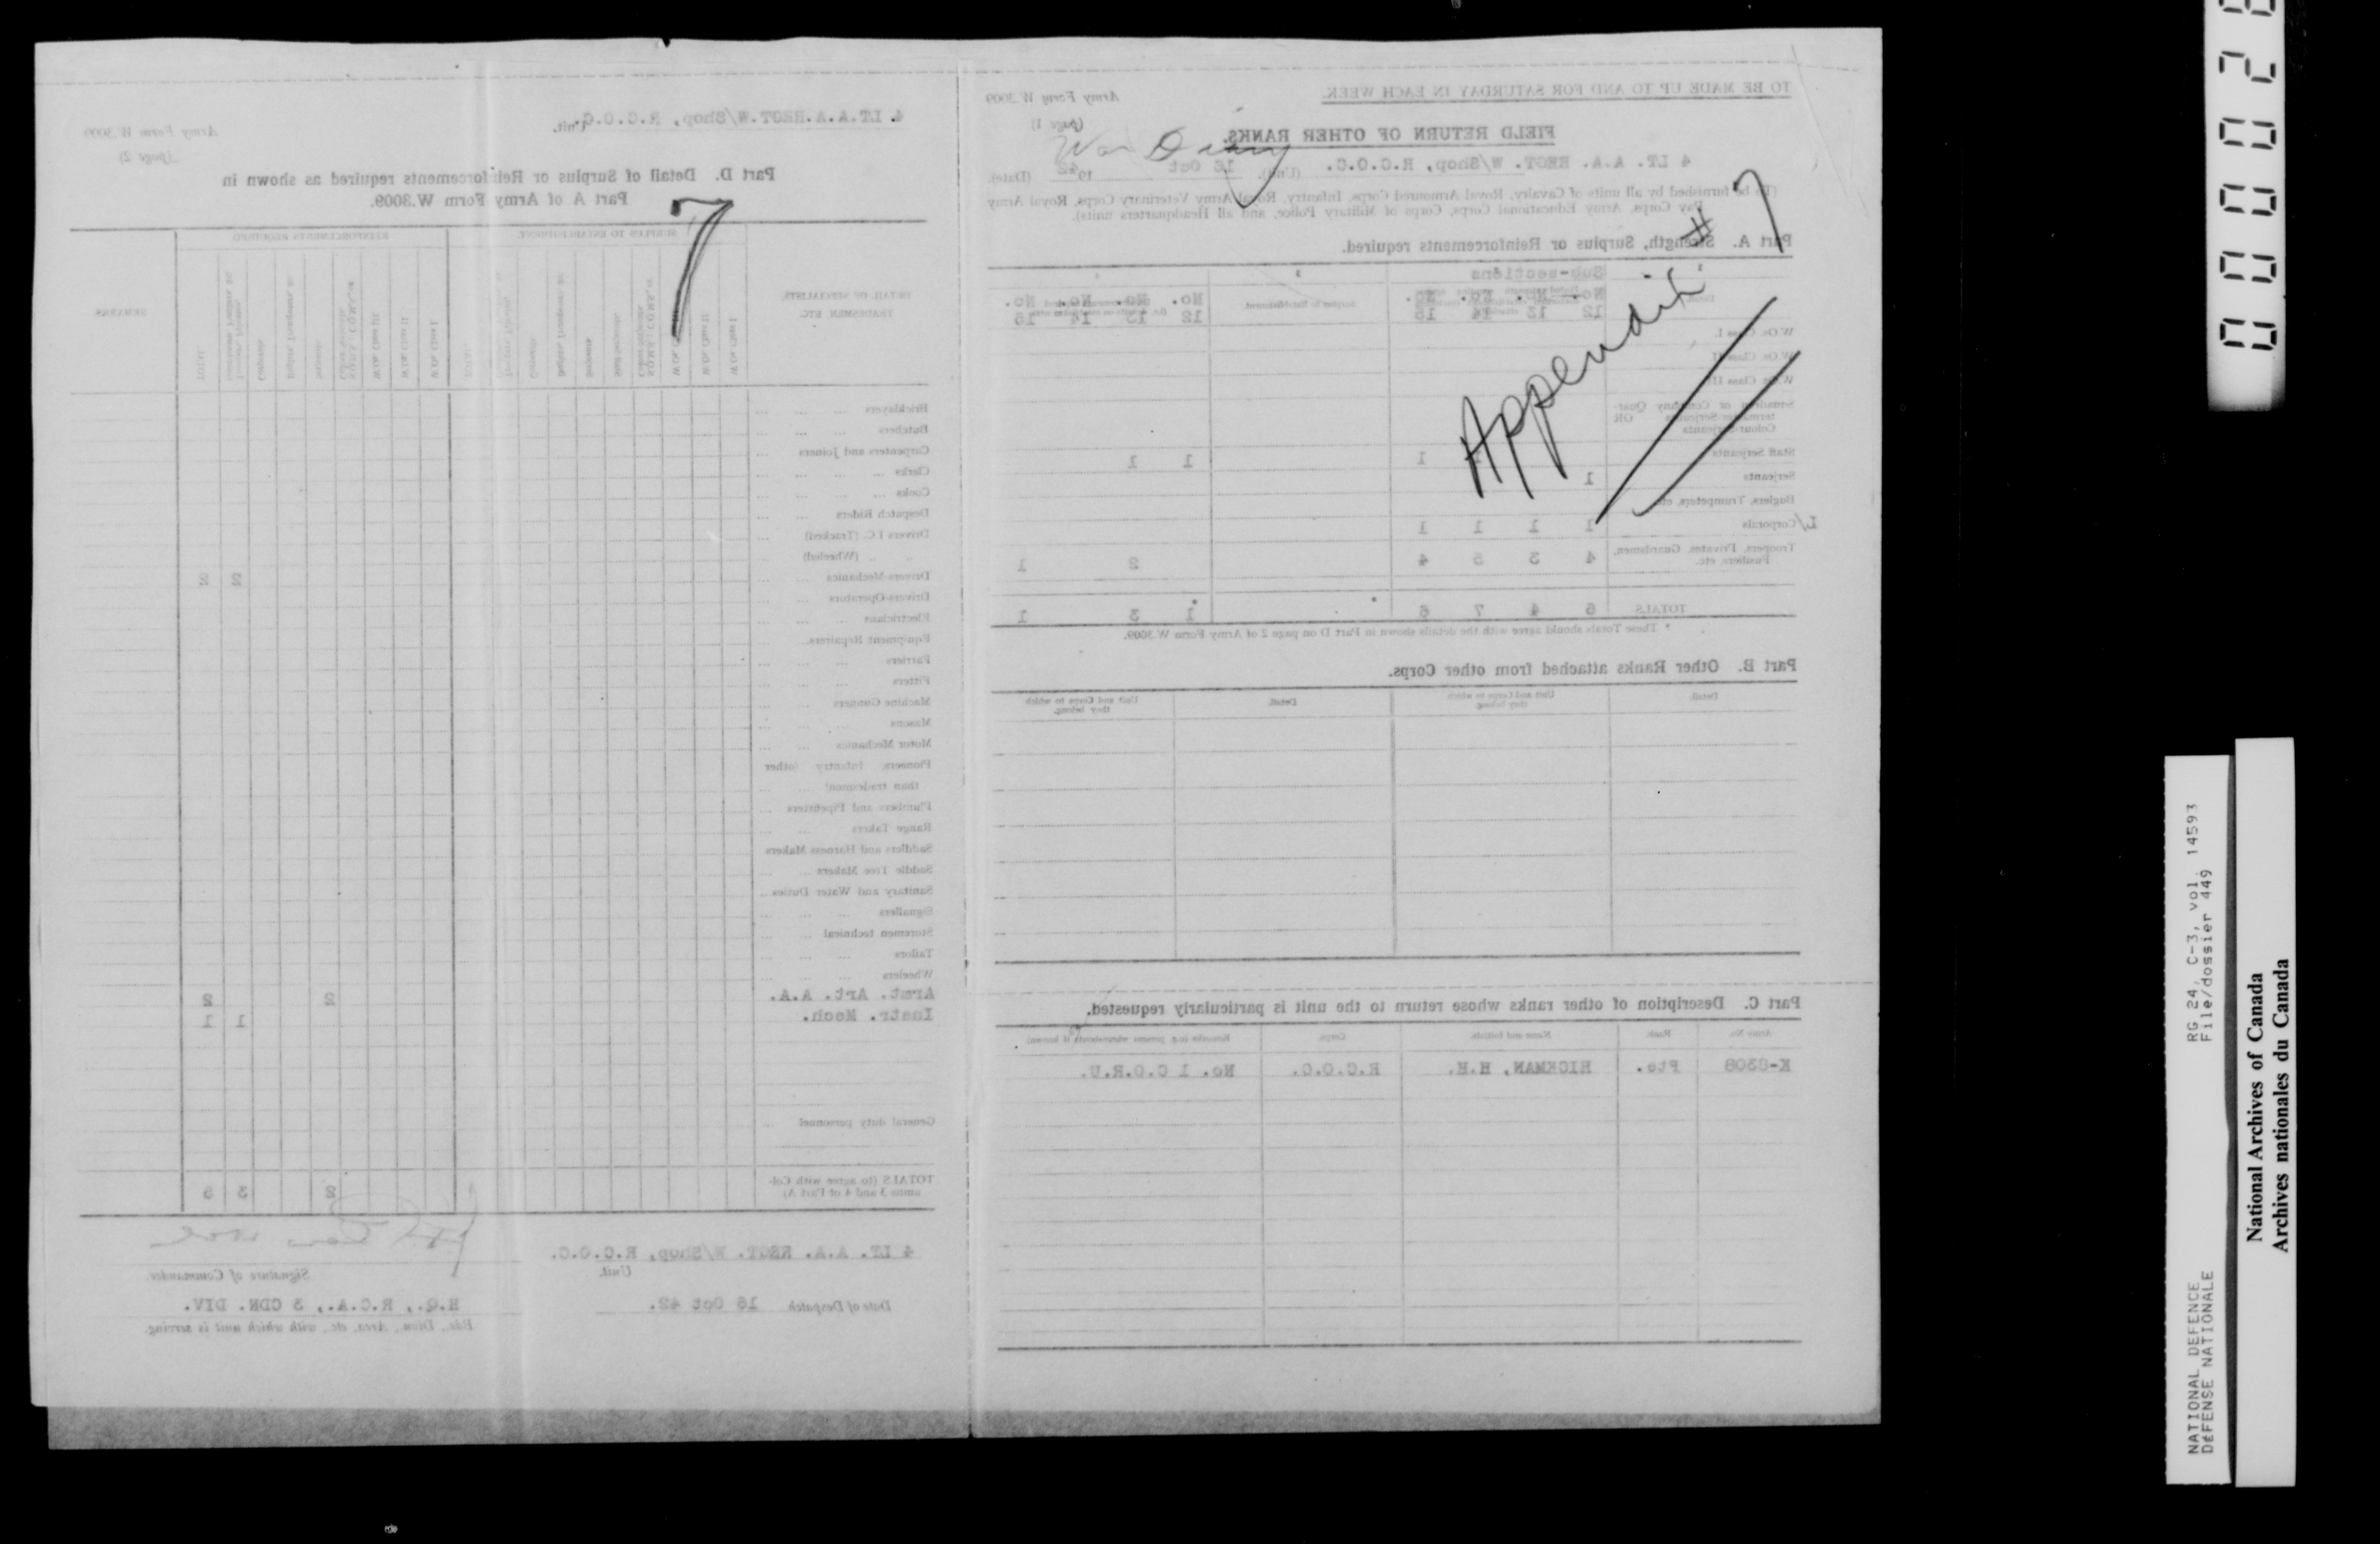 TO BE MADE UP TO AND FOR SATURDAY IN EACH WEEK.
Army Form W.3009
(page 1)
FIELD RETURN OF OTHER RANKS.
War Diary
4 LT. A.A. REGT. W/Shop, R.C.O.C. (Unit). 16 Oct 1942 (Date).
(To be furnished by all units of Cavalry, Royal Armoured Corps, Infantry, Royal Army Veterinary Corps, Royal Army
Pay Corps, Army Educational Corps, Corps of Military Police, and all Headquarters units).
Appendix # 7
Part A. Strength, Surplus or Reinforcements required.
Sub-sections
Detail Surplus to Establishment
No. No. No. No. No. No. No. No.
12 13 14 15 12 13 14 15
W.Os. Class I.
W.Os. Class II
W.Os. Class III
Squadron or Company Quar-
termaster-Serjeants OR
Colour-Serjeants
Staff Serjeants 1 1 1 1
Serjeants 1
Buglers, Trumpeters, etc.
L/Corporals 1 1 1 1
Troopers, Privates, Guardsmen, Fusiliers, etc. 4 3 5 4 2 1
TOTALS 6 4 7 6 * 1 3 1
* These Totals should agree with the details shown in Part D on page 2 of Army Form W.3009.
Part B. Other Ranks attached from other Corps.
Detail. Unit and Corps to which they belong. Detail. Unit and Corps to which they belong.
Part C. Description of other ranks whose return to the unit is particularly requested.
Army No. Rank. Name and Initials. Corps. Remarks (i.e. present whereabouts if known)
K-8308 Pte. HICKMAN, H.H. R.C.O.C. No. 1 C.O.R.U.
4 LT.A.A.REGT.W/Shop, R.C.O.C. Unit.
Army Form W.3009
(page 2)
Part D. Detail of Surplus or Reinforcements required as shown in
Part A of Army Form W.3009.
7
DETAIL OF SPECIALISTS, TRADESMEN, ETC. SURPLUS TO ESTABLISHMENT. REINFORCEMENTS REQUIRED REMARKS
W.Os. Class I W.Os. Class II TOTAL
Bricklayers
Butchers
Carpenters and Joiners
Clerks
Cooks
Despatch Riders
Drivers I.C. (Tracked)
" " (Wheeled)
Drivers-Mechanics 2 2
Drivers-Operators
Electricians
Equipment Repairers
Farriers
Fitters
Machine Gunners
Masons
Motor Mechanics
Pioneers, Infantry (other
than tradesmen)
Plumbers and Pipefitters
Range Takers
Saddlers and Harness Makers
Saddle Tree Makers
Sanitary and Water Duties
Signallers
Storemen technical
Tailors
Wheelers
Armt. Art. A.A. 2 2
Instr. Mech. 1 1
General duty personnel
TOTALS (to agree with Col-
umns 3 and 4 of Part A) 2 3 5
4 LT. A.A. REGT. W/Shop, R.C.O.C.
Unit.
Signature of Commander.
Date of Despatch 16 Oct 42.
H.Q., R.C.A., 3 CDN. DIV.
Bde., Divn., Area, etc., with which unit is serving.
RG 24, C-3, vol. 14593
File/dossier 449
NATIONAL DEFENCE
DÉFENSE NATIONALE
National Archives of Canada
Archives nationales du Canada